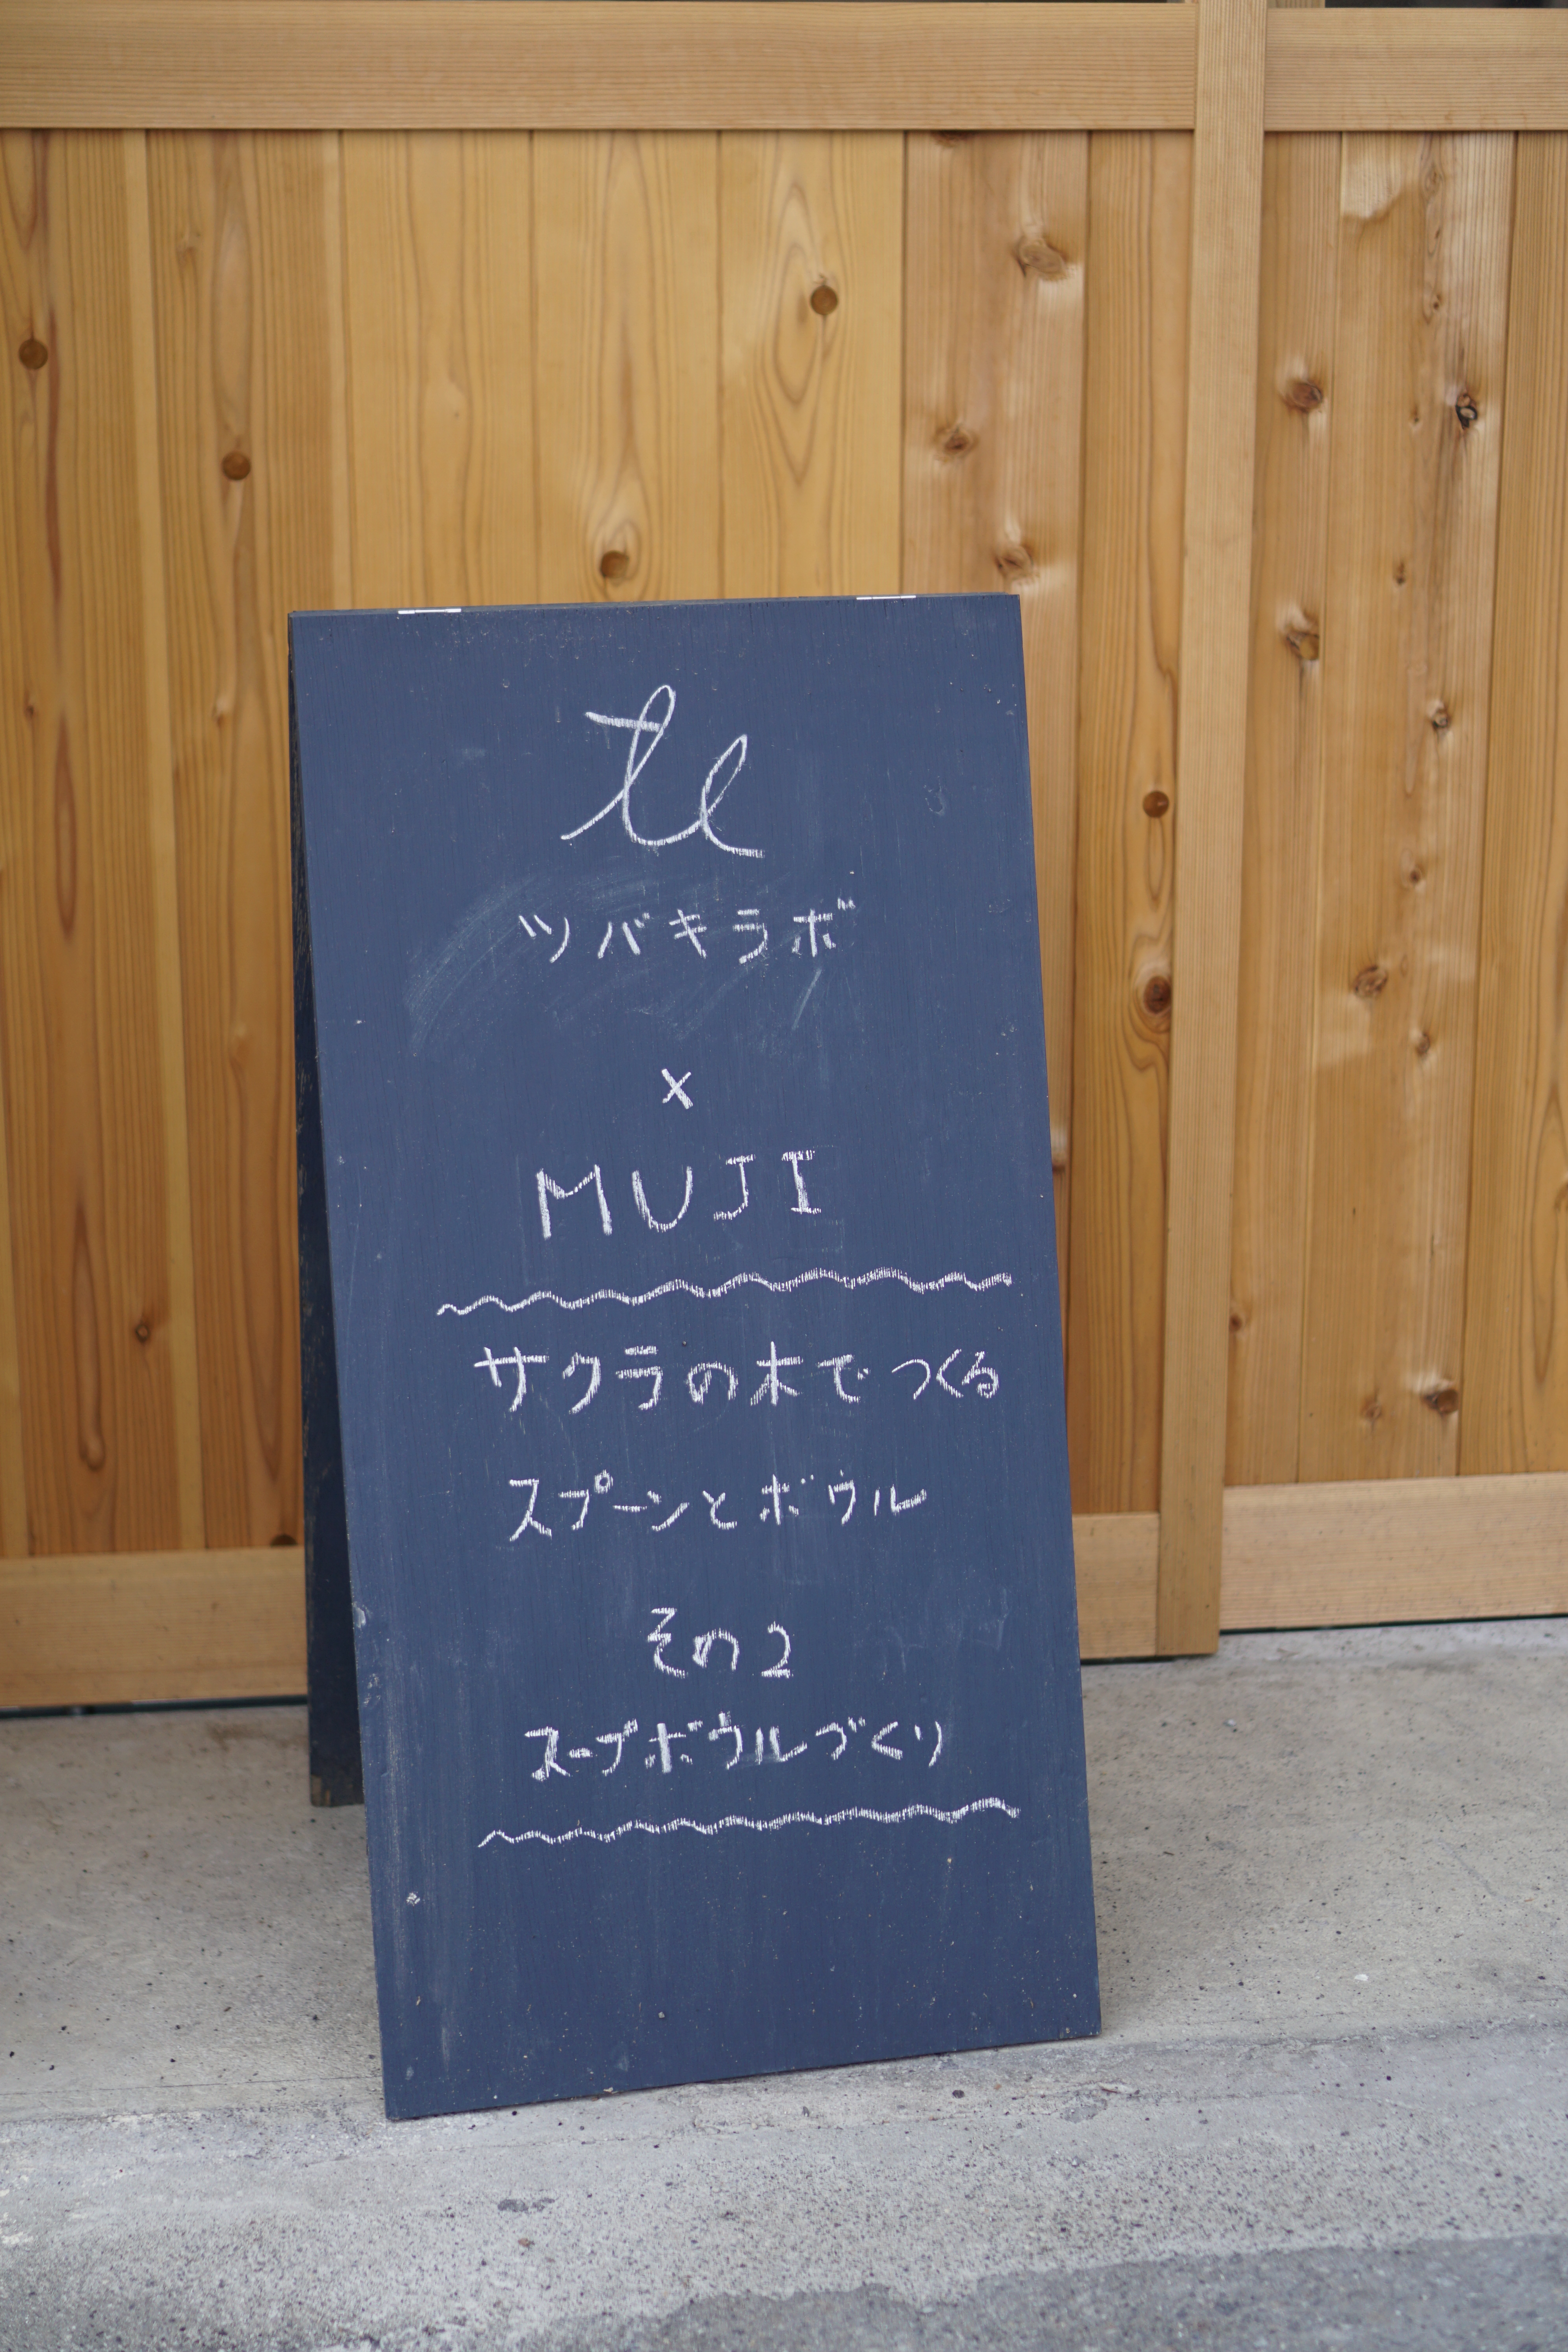 tl
ツバキラボ
×
MUJI
サクラの木でつくる
スプーンとボウル
その2
スープボウルづくり